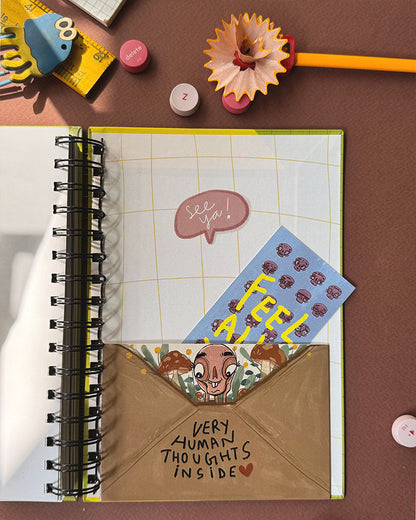 delete
Z
see
ya!
FEEL
VERY
HUMAN
THOUGHTS
INSIDE